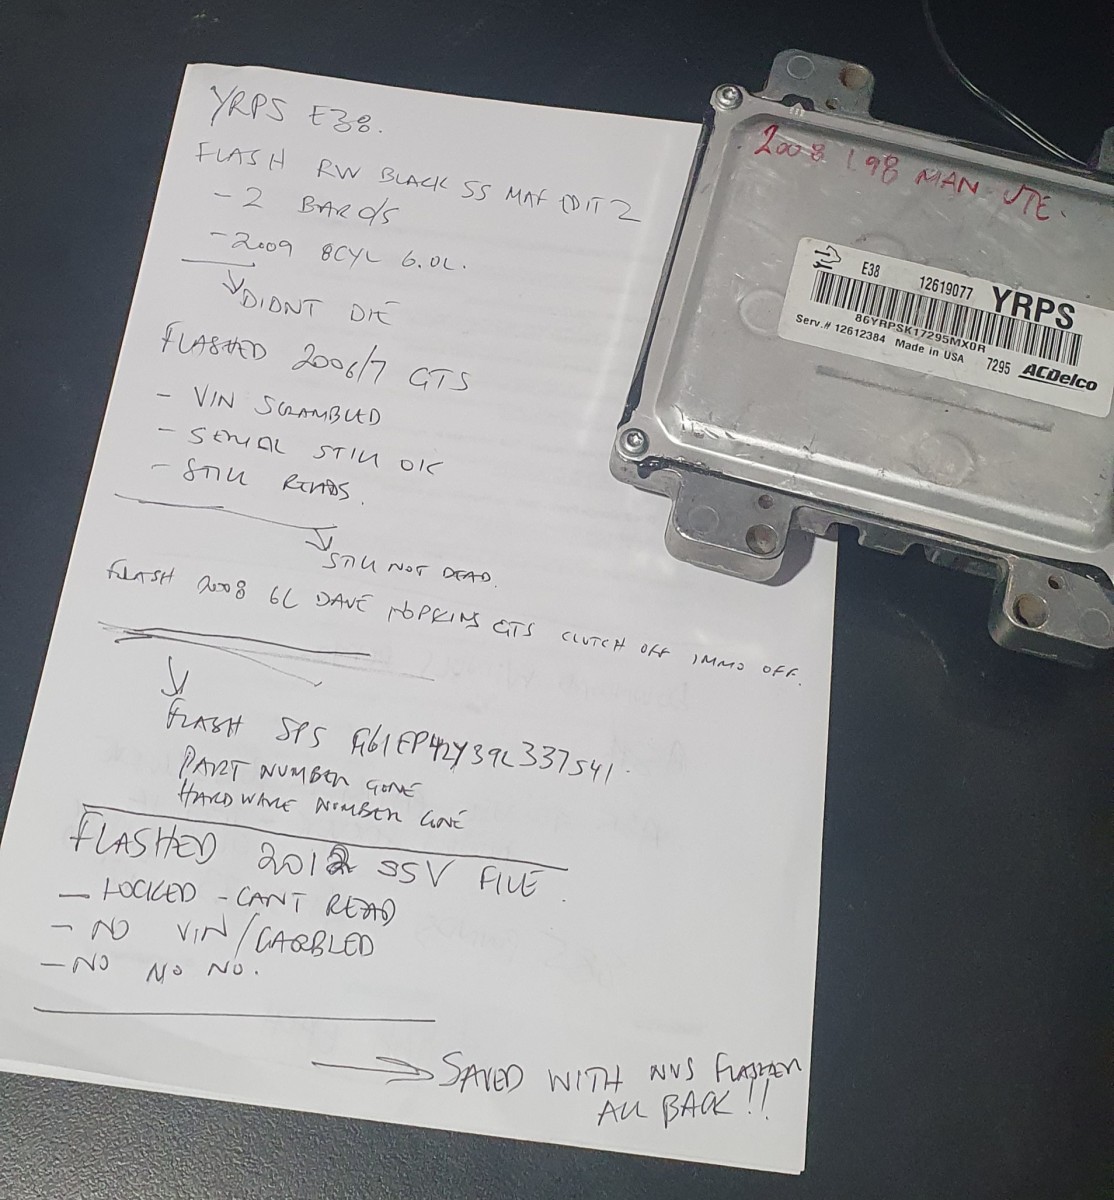 YRPS E38.
FLASH RW BLACK SS MAF EDIT 2
- 2 BAR O/S
- 2009 8CYL 6.0L.
DIDNT DIE
FLASHED 2006/7 GTS
- VIN SCRAMBLED
- SERIAL STILL OK
- STILL READS.
STILL NOT DEAD.
FLASH 2008 6L DAVE HOPKINS GTS CLUTCH OFF IMMO OFF.
FLASH SPS 6G1EP42Y39L337541.
PART NUMBER GONE
HARDWARE NUMBER GONE
FLASHED 2012 SSV FILE.
- LOCKED - CANT READ
- NO VIN/GARBLED
- NO NO NO.
SAVED WITH NVS FLASHER
ALL BACK!!
2008 L98 MAN UTE.
E38 12619077 YRPS
86YRPSK17295MX0R
Serv.# 12612384 Made in USA 7295 ACDelco